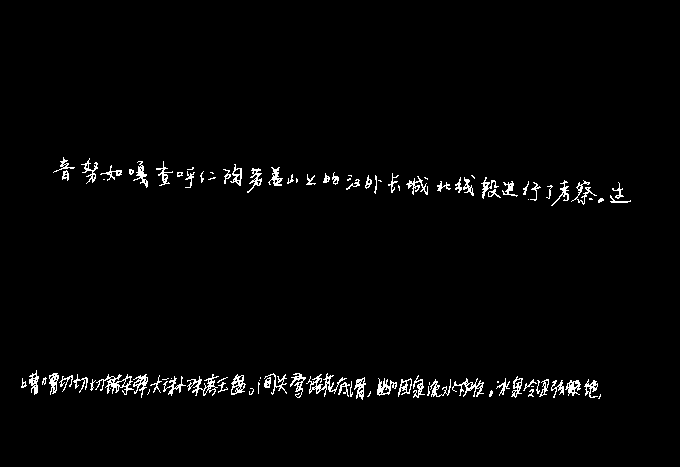 音努如嘎查呼仁陶勞蓋山上的汉外长城北线段进行了考察。这
嘈嘈切切错杂弹,大珠小珠落玉盘。间关莺语花底滑,幽咽泉流水下难。冰泉冷涩弦凝绝,